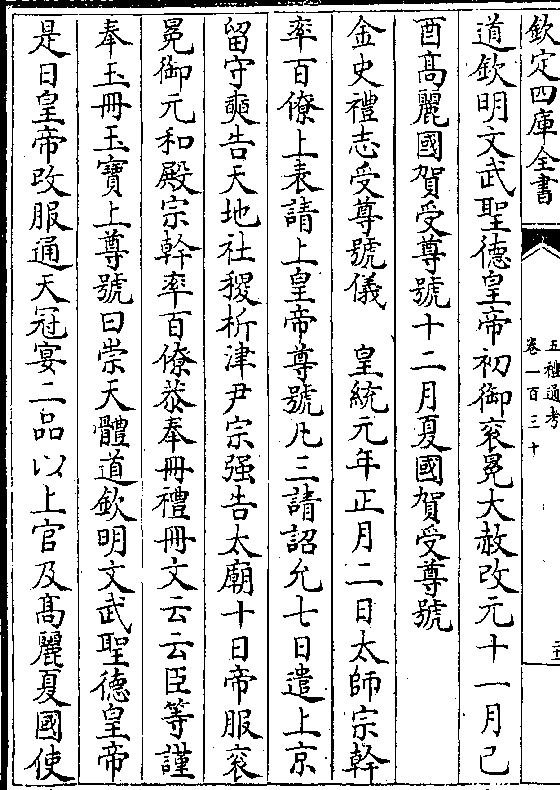 欽定四庫全書
五禮通考
卷一百三十
道欽明文武聖德皇帝初御衮冕大赦改元十一月己
酉髙麗國賀受尊號十二月夏國賀受尊號
金史禮志受尊號儀　皇統元年正月二日太師宗幹
率百僚上表請上皇帝尊號凡三請詔允七日遣上京
留守奭告天地社稷析津尹宗强告太廟十日帝服衮
冕御元和殿宗幹率百僚恭奉冊禮冊文云云臣等謹
奉玉冊玉寶上尊號曰崇天體道欽明文武聖德皇帝
是日皇帝改服通天冠宴二品以上官及髙麗夏國使